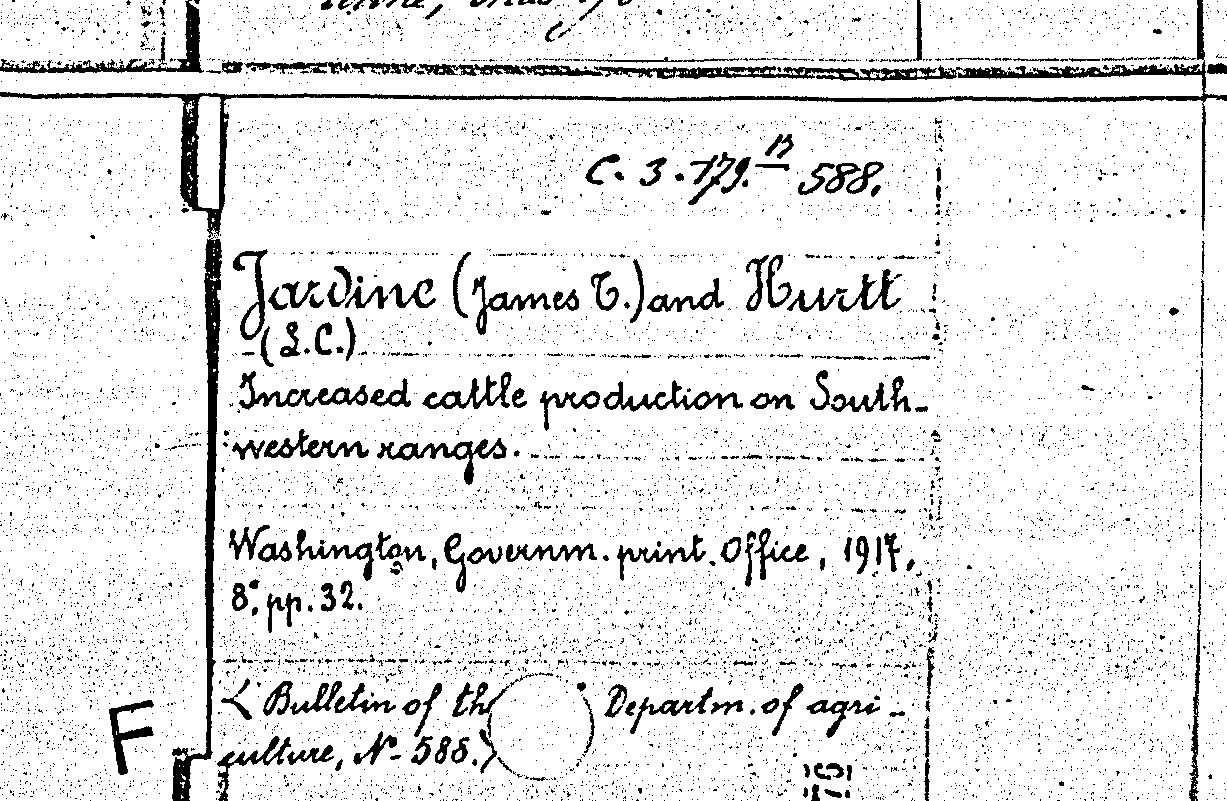 C. 3. 179. 13 588.
Jardine (James T.) and Hurtt
-(L.C.)
Increased cattle production on South-
western ranges.
Washington, Governm. print. Office, 1917,
8°, pp. 32.
< Bulletin of th Departm. of agri-
culture, N- 588.>
F